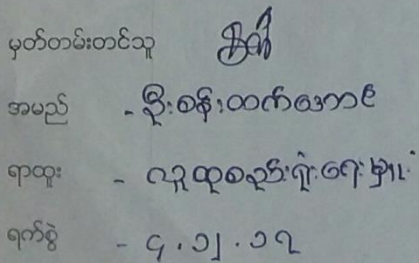 မှတ်တမ်းတင်သူ
အမည် - ဦးစန်းထက်အောင်
ရာထူး - လူထုစည်းရုံးရေးမှူး
ရက်စွဲ - ၄.၁၂.၁၇